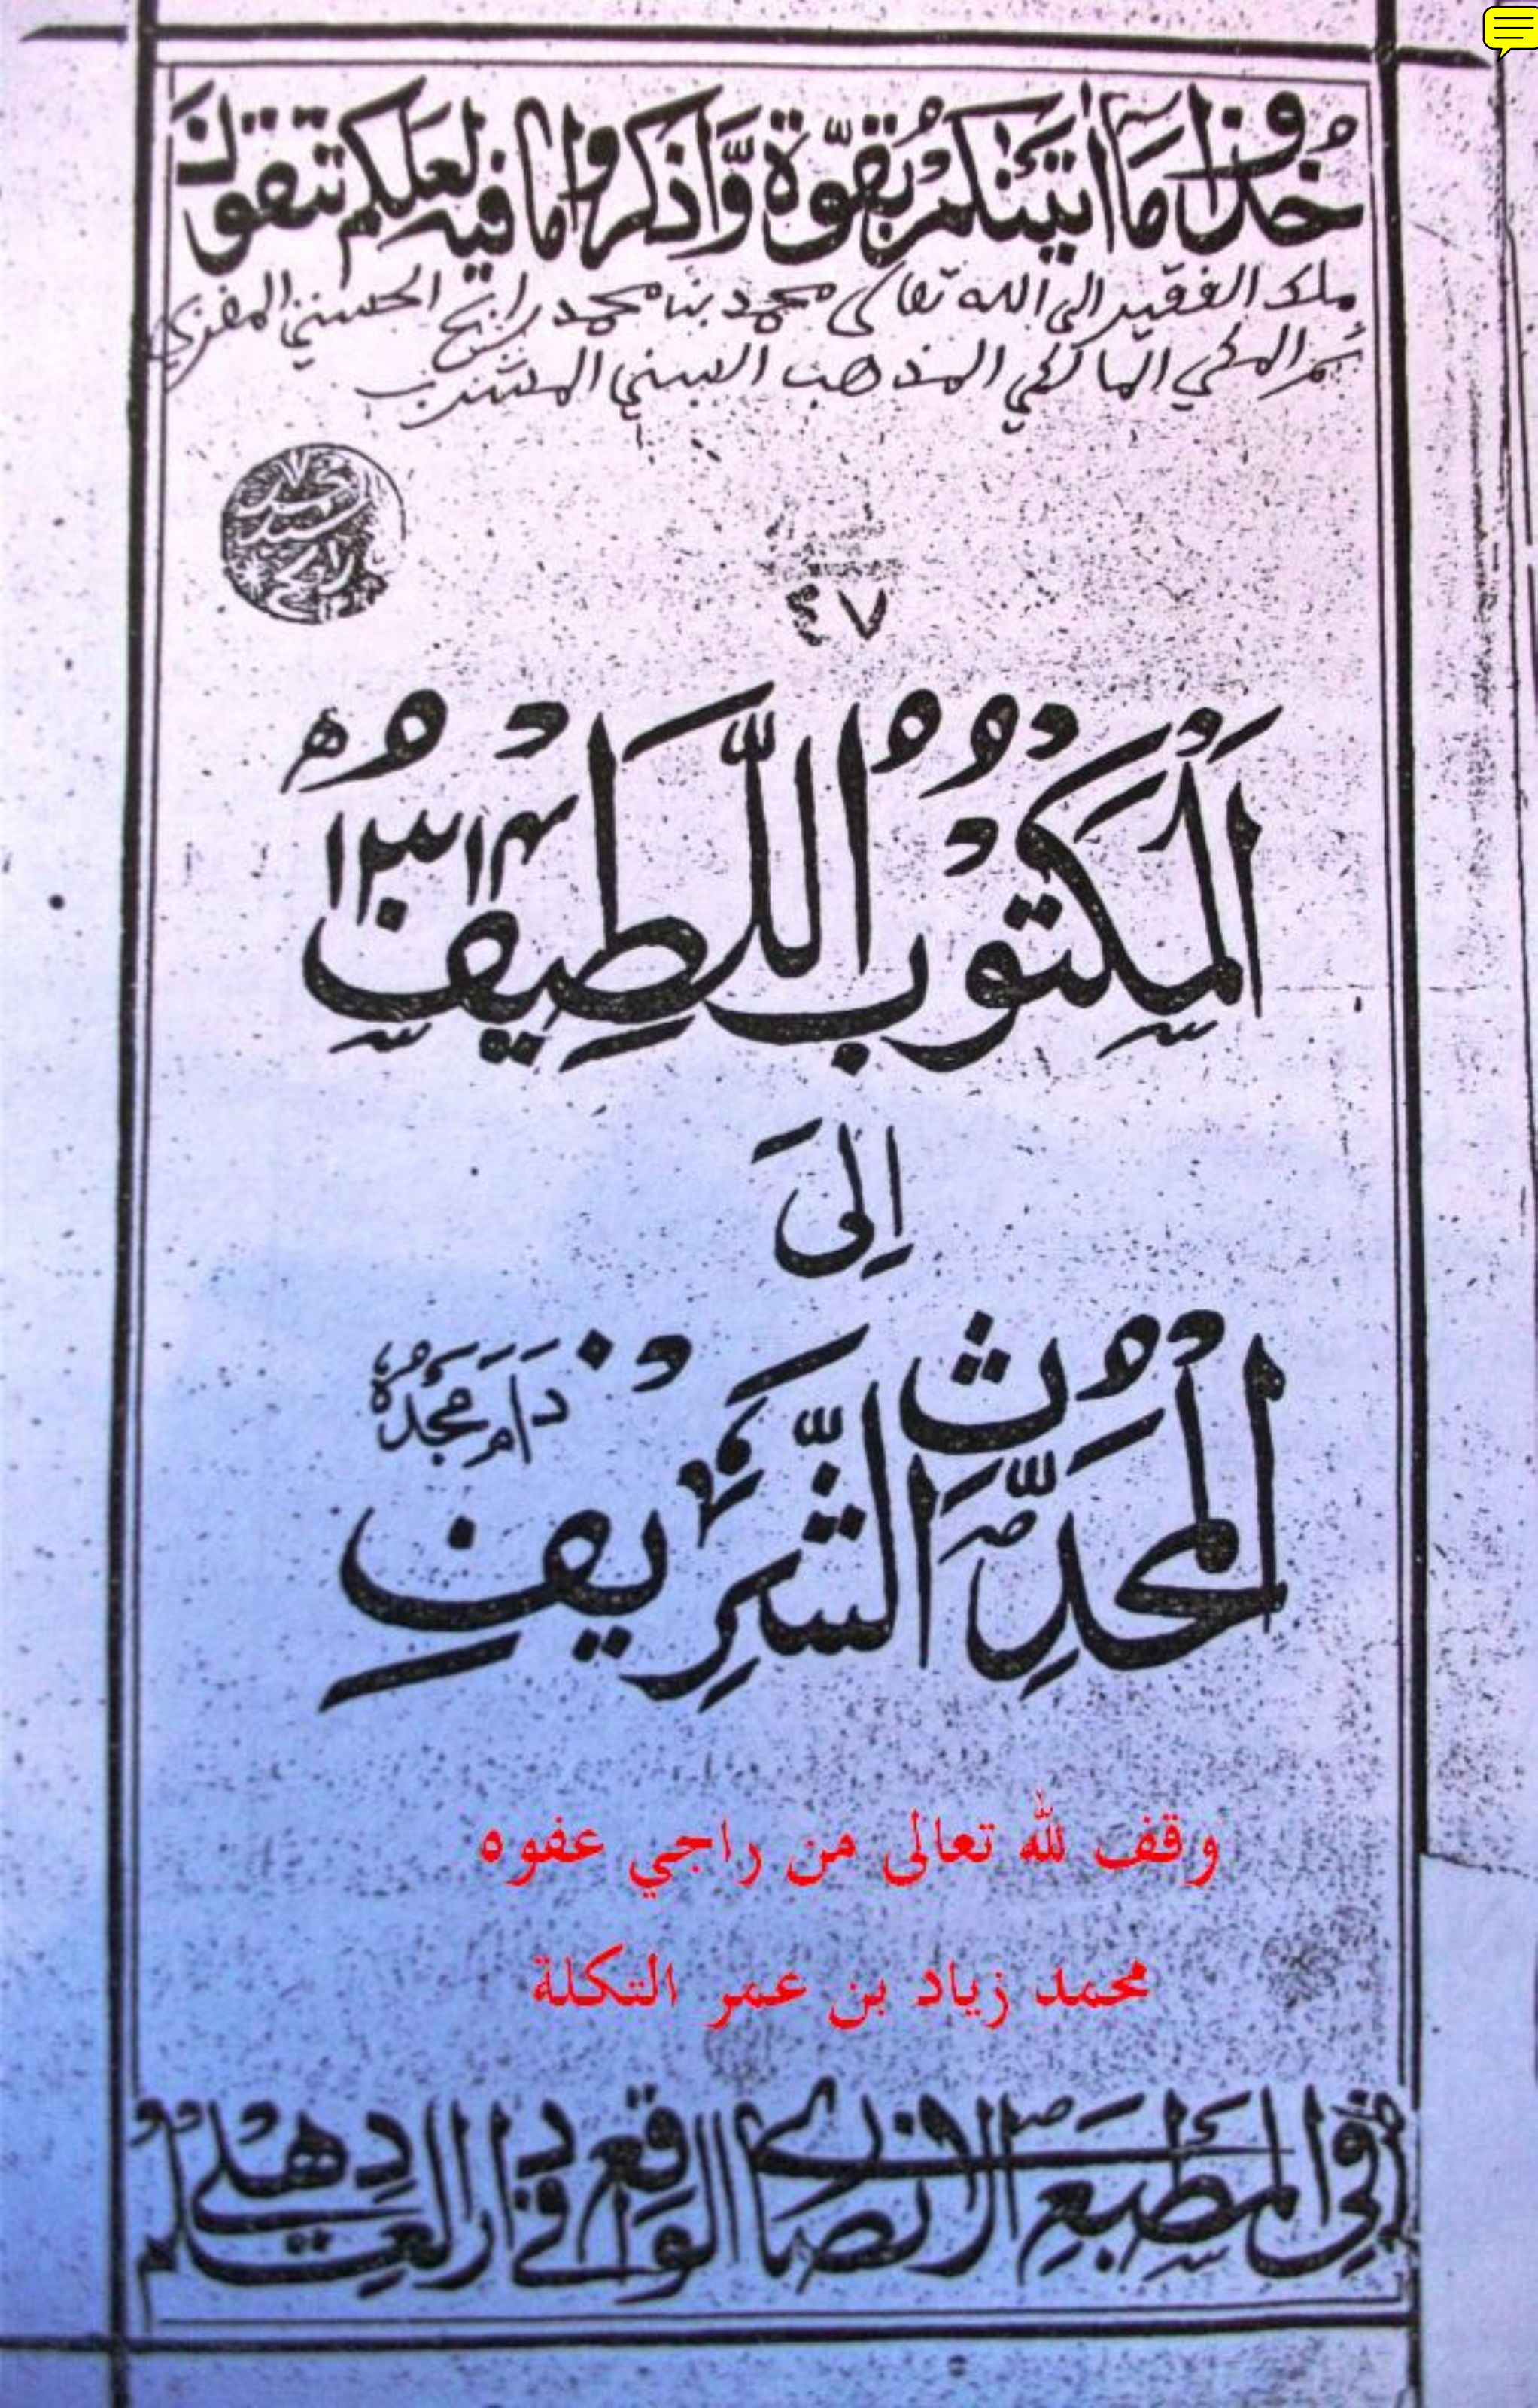 خُذُوا مَا اٰتَيْنٰكُمْ بِقُوَّةٍ وَّاذْكُرُوا مَا فِيهِ لَعَلَّكُمْ تَتَّقُونَ
ملك الفقير الى الله تعالى محمد بن محمد رابح الحسني المغربي
ثم المكي المالكي المذهب السني المشرب
٤٧
اَلْمَكْتُوْبُ اللَّطِيْفُ
١٣١٤ هـ
اِلَى
الْمُحَدِّثِ الشَّرِيْفِ
دَامَ مَجْدُهُ
وقف لله تعالى من راجي عفوه
محمد زياد بن عمر التكلة
فِي الْمَطْبَعِ الْاَنْصَارِي الْوَاقِعِ فِي دَارِ الْعِلْمِ دِهْلِي